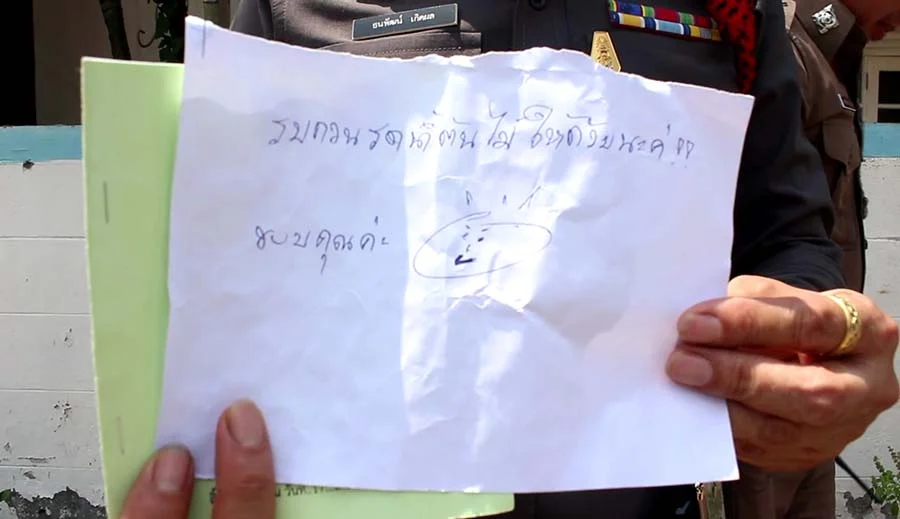 ธนพัฒน์ เกิดผล
รบกวนรดน้ำต้นไม้ ให้ด้วยนะค่ะ !!
ขอบคุณค่ะ